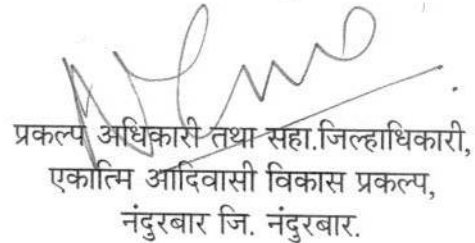 प्रकल्प अधिकारी तथा सहा.जिल्हाधिकारी,
एकात्मि आदिवासी विकास प्रकल्प,
नंदुरबार जि. नंदुरबार.